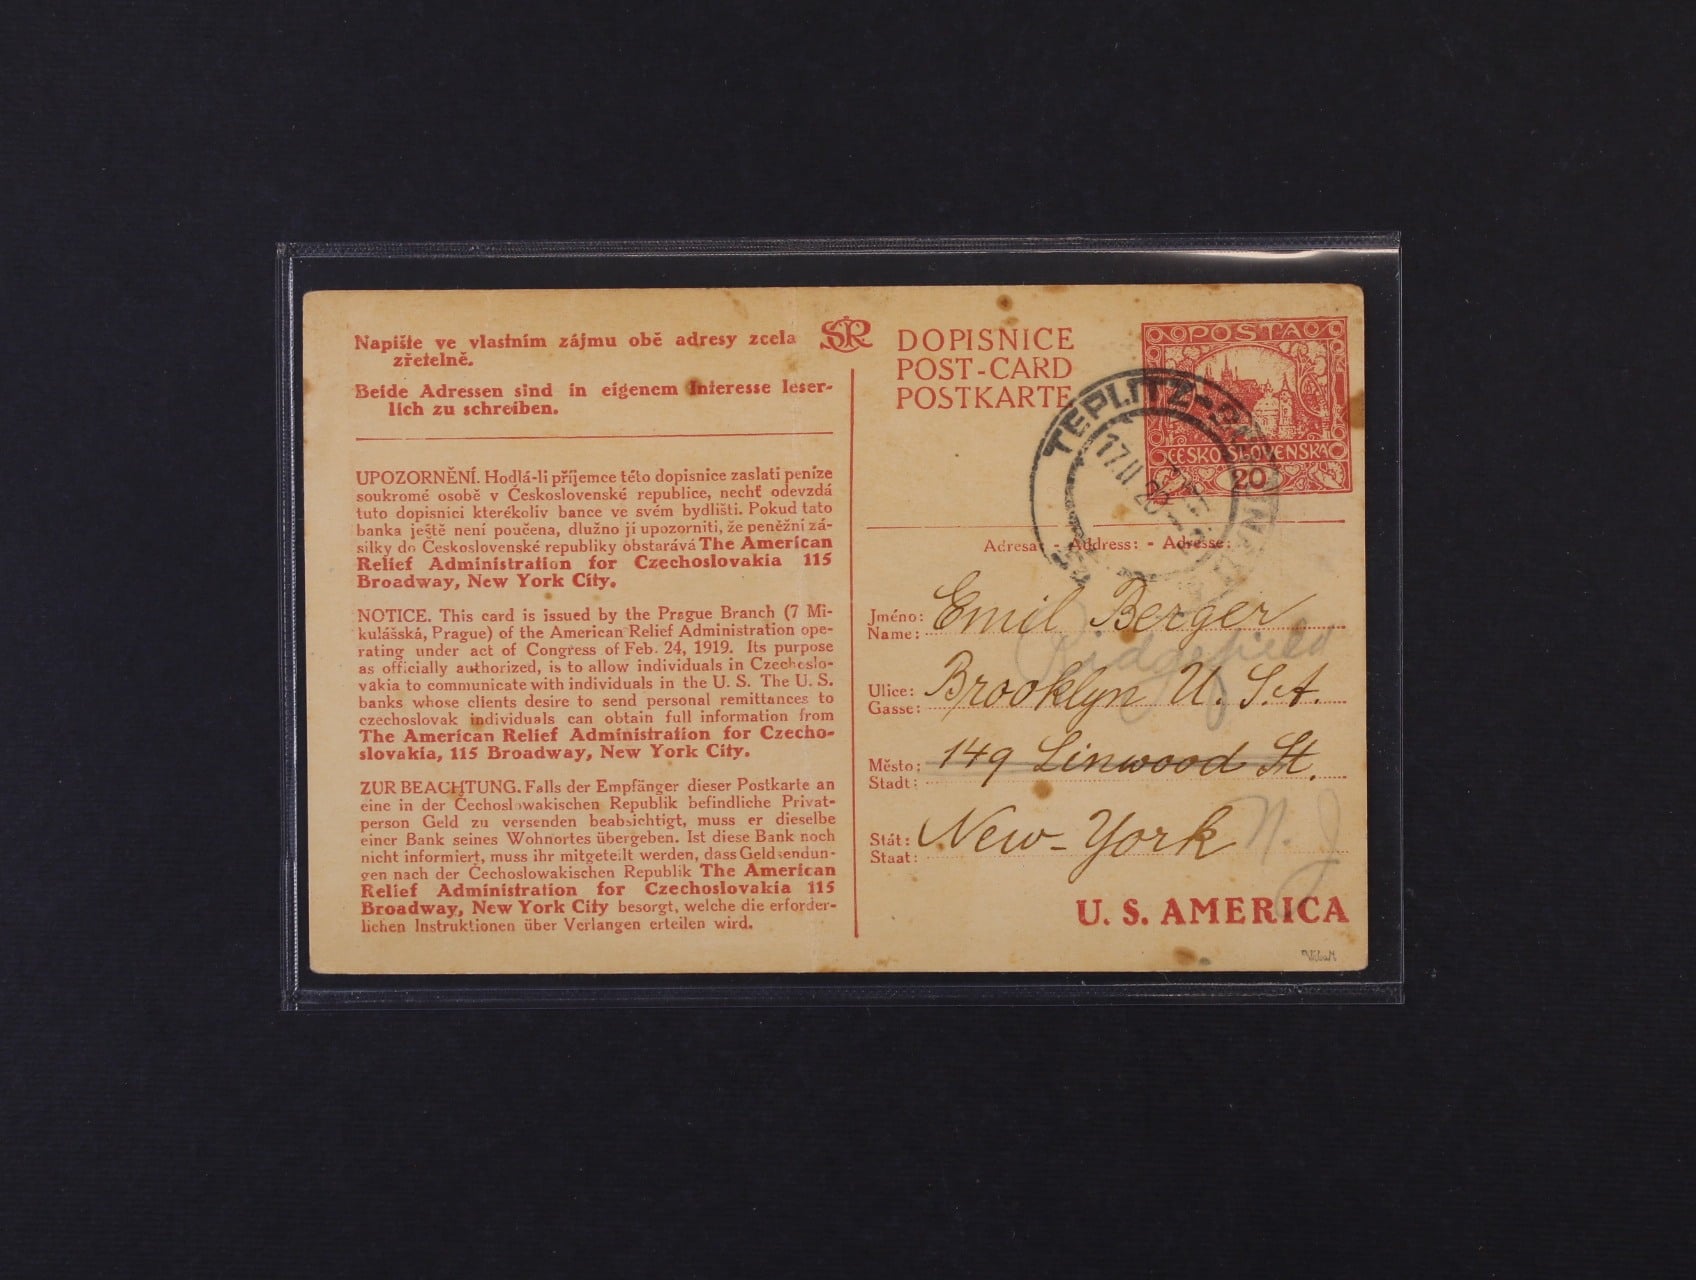 Napište ve vlastním zájmu obě adresy zcela
zřetelně.
Beide Adressen sind in eigenem Interesse leser-
lich zu schreiben.
UPOZORNĚNÍ. Hodlá-li příjemce této dopisnice zaslati peníze
soukromé osobě v Československé republice, nechť odevzdá
tuto dopisnici kterékoliv bance ve svém bydlišti. Pokud tato
banka ještě není poučena, dlužno jí upozorniti, že peněžní zá-
silky do Československé republiky obstarává The American
Relief Administration for Czechoslovakia 115
Broadway, New York City.
NOTICE. This card is issued by the Prague Branch (7 Mi-
kulášská, Prague) of the American Relief Administration ope-
rating under act of Congress of Feb. 24, 1919. Its purpose
as officially authorized, is to allow individuals in Czechoslo-
vakia to communicate with individuals in the U. S. The U. S.
banks whose clients desire to send personal remittances to
czechoslovak individuals can obtain full information from
The American Relief Administration for Czecho-
slovakia, 115 Broadway, New York City.
ZUR BEACHTUNG. Falls der Empfänger dieser Postkarte an
eine in der Čechoslowakischen Republik befindliche Privat-
person Geld zu versenden beabsichtigt, muss er dieselbe
einer Bank seines Wohnortes übergeben. Ist diese Bank noch
nicht informiert, muss ihr mitgeteilt werden, dass Geldsendun-
gen nach der Čechoslowakischen Republik The American
Relief Administration for Czechoslovakia 115
Broadway, New York City besorgt, welche die erforder-
lichen Instruktionen über Verlangen erteilen wird.
ČSR
DOPISNICE
POST-CARD
POSTKARTE
POSTA
ČESKOSLOVENSKÁ
20
TEPLITZ-
17.II 20
Adresa: - Address: - Adresse:
Jméno: Emil Berger
Name:
Ridgefield
Ulice: Brooklyn U. S. A.
Gasse:
Město: 149 Linwood St.
Stadt:
Stát: New-York N. J.
Staat:
U. S. AMERICA